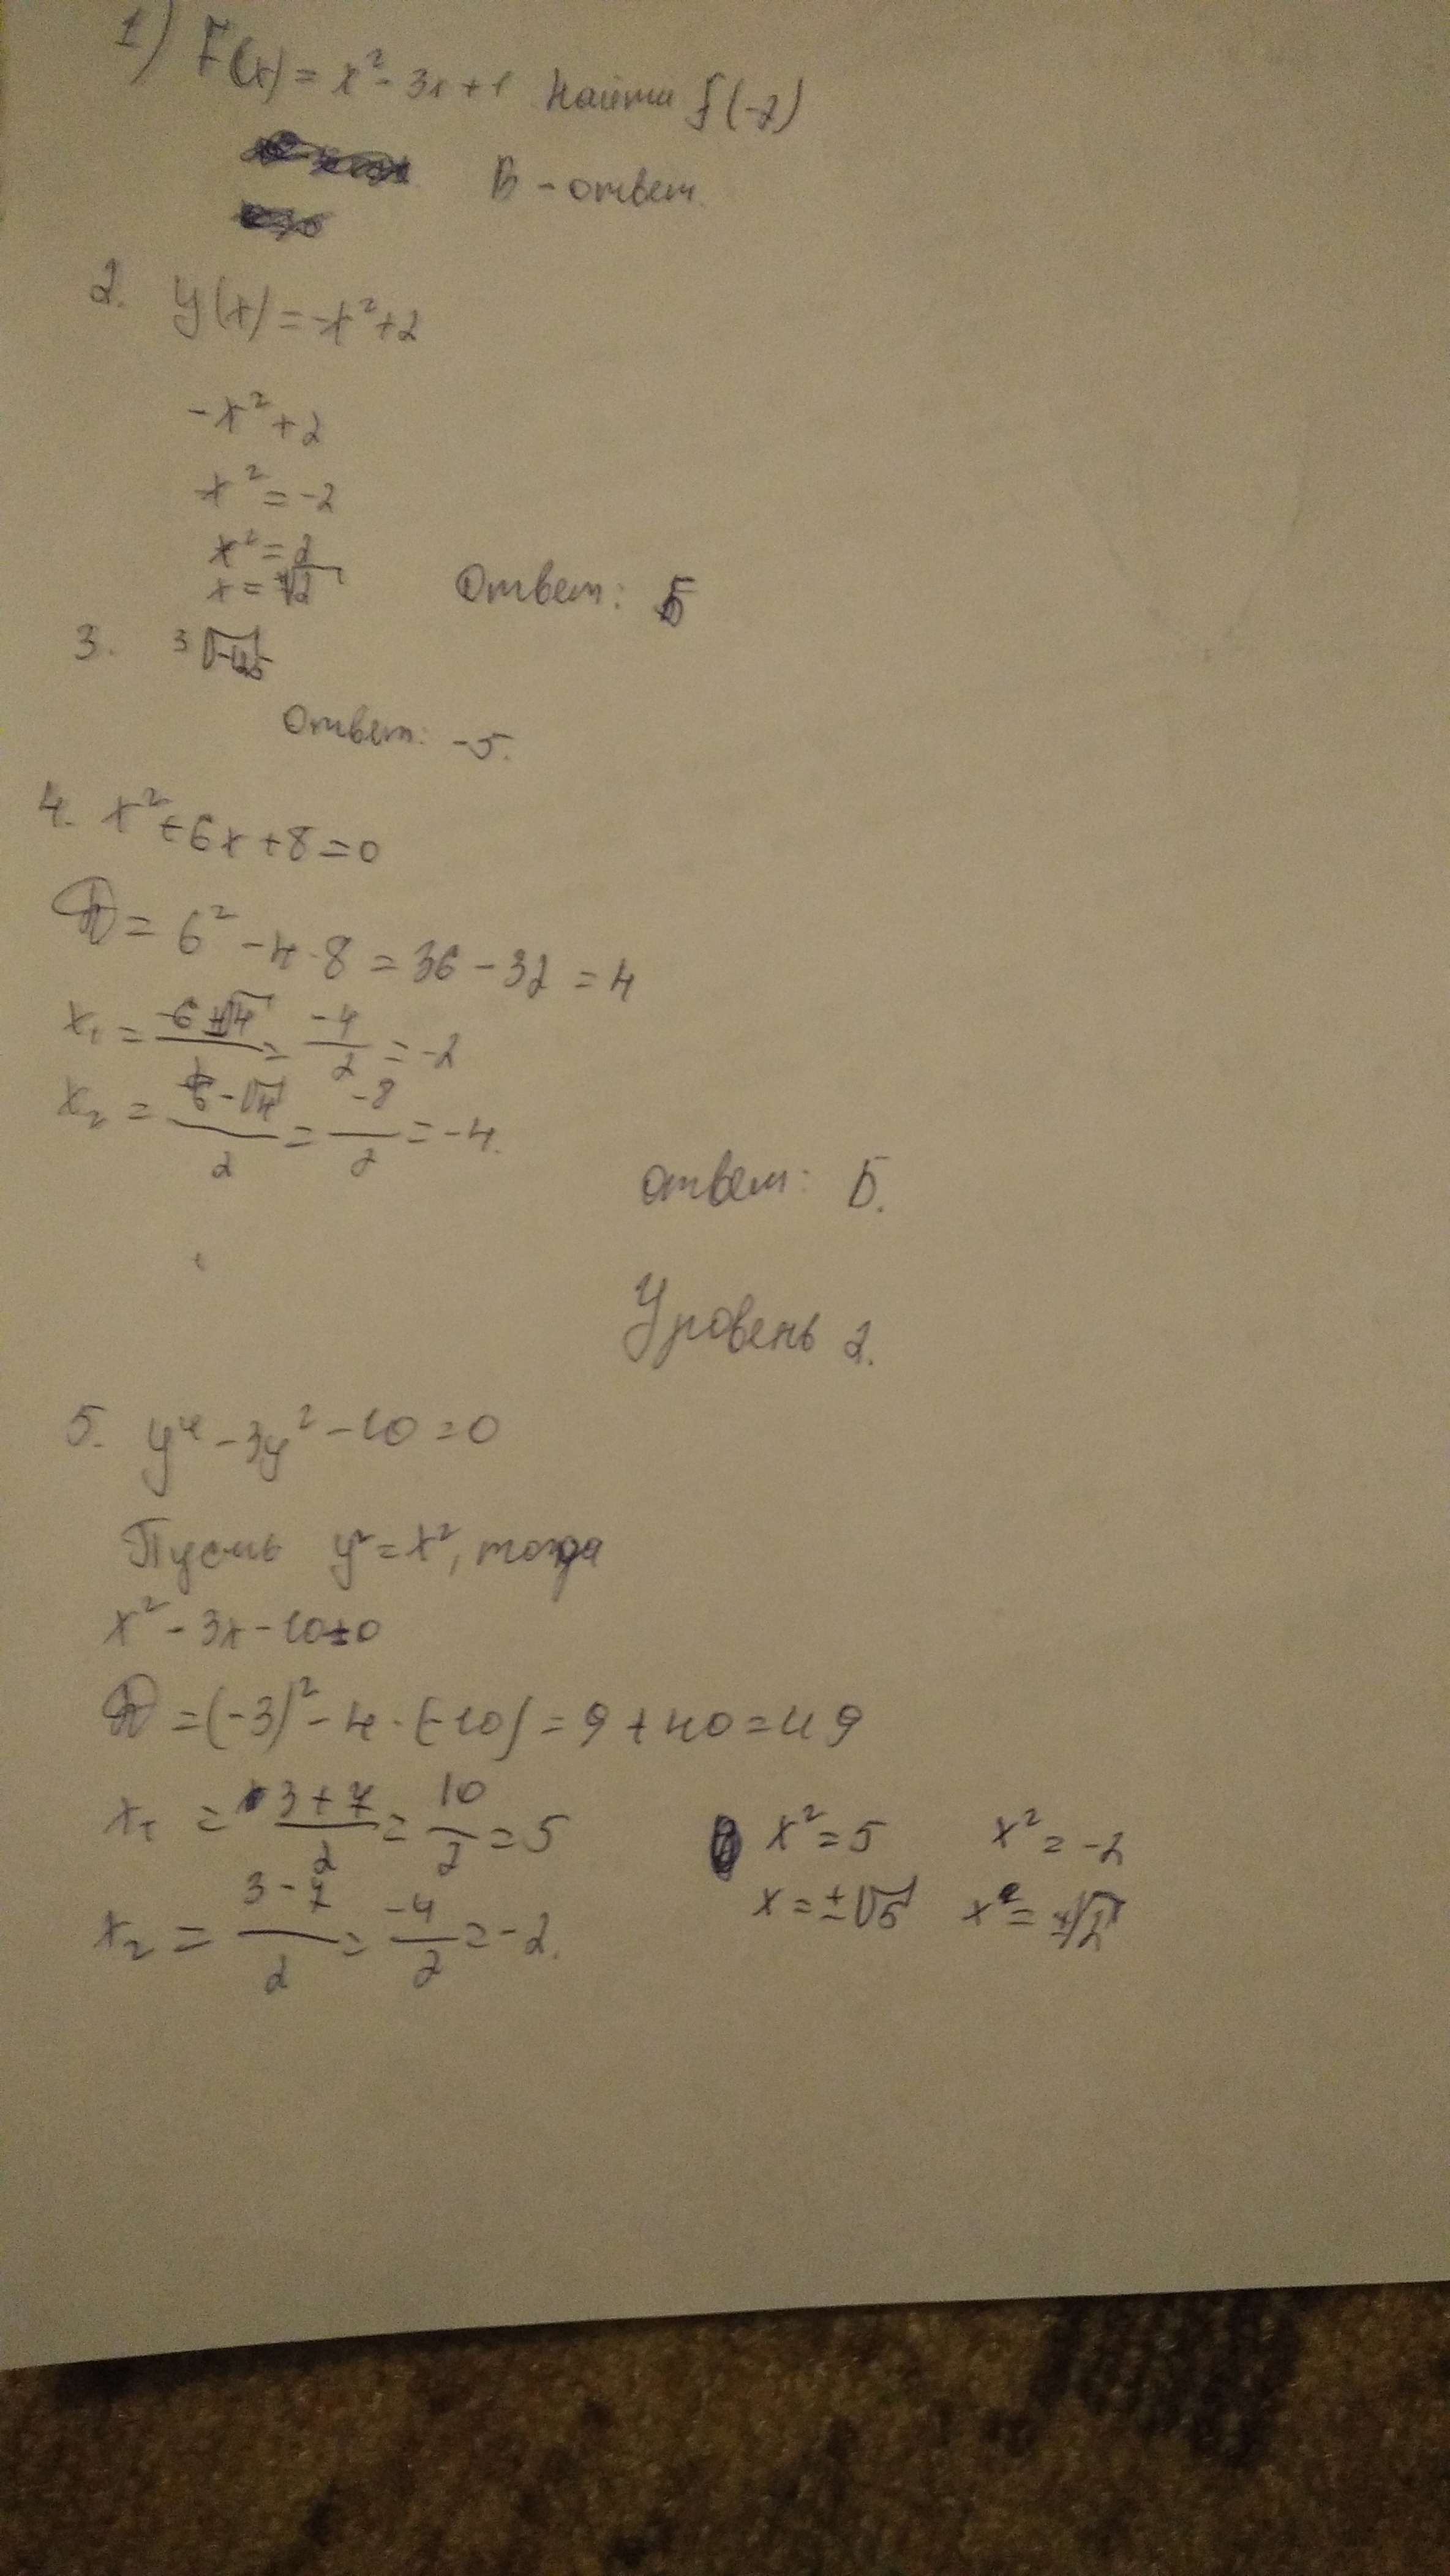 1) F(x) = x² - 3x + 1 Найти f(-2)
В - ответ.
2. y(x) = -x² + 2
-x² + 2
-x² = -2
x² = 2
x = √2 Ответ: Б
3. ³√-125
Ответ: -5.
4. x² + 6x + 8 = 0
D = 6² - 4 · 8 = 36 - 32 = 4
x₁ = (-6 + √4)/2 = -4/2 = -2
x₂ = (-6 - √4)/2 = -8/2 = -4.
Ответ: Б.
Уровень 2.
5. y⁴ - 3y² - 10 = 0
Пусть y² = x², тогда
x² - 3x - 10 = 0
D = (-3)² - 4 · (-10) = 9 + 40 = 49
x₁ = (3 + 7)/2 = 10/2 = 5
x₂ = (3 - 7)/2 = -4/2 = -2.
x² = 5 x² = -2
x = ±√5